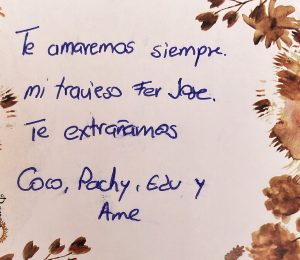 Te amaremos siempre.
mi travieso Fer Jose.
Te extrañamos
Coco, Pachy, Edu y
Ame